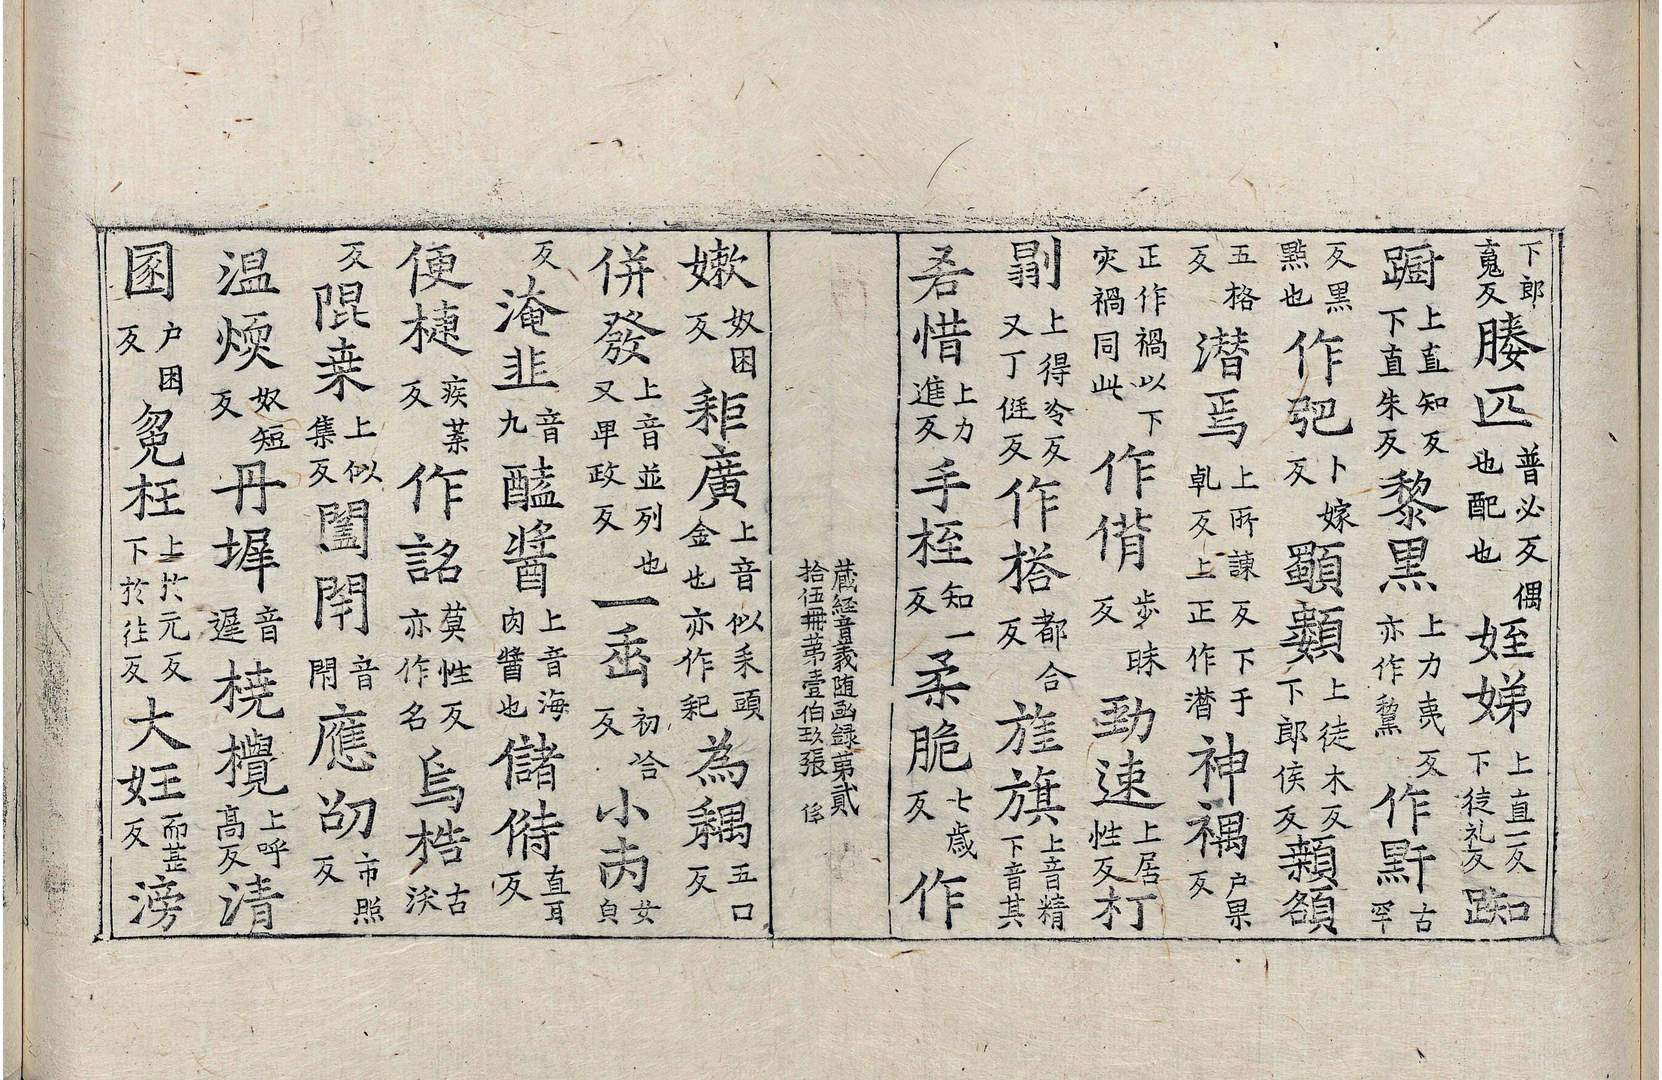 下郎䰟反媵匹普必反偶也配也姪娣上直一反下徒礼反踟
蹰上直知反下直朱反黎黒上力夷反亦作黧作黚古罕
反黒點也作𠨞卜嫁反顕纇上徒木反下郎侯反頼頟
五格反潜焉上所諫反下于乹反上正作潸神禍户果反
正作禍以下灾禍同此作偝步昧反勁速上居性反朾
剔上得冷反又丁侹反作搭都合反旌旗上音精下音其
吝惜上力進反手桎知一反柔脆七歳反作
藏經音義随函録第貳
拾伍冊第壹伯玖張
嫩奴困反秬廣上音似釆頭金也亦作耜為耦五口反
併發上音並列也又甼政反一臿初洽反小肉女
反淹韮音九醢醬上音海肉醬也儲偫直耳反
便捷疾葉反作詺莫性反亦作名烏梏古沃
反隉来上似集反闔閇音閇應劭市照反
温煗奴短反丹墀音遲橈攪上呼高反清
圂户困反寃枉上於元反下於往反大妊而甚反滂